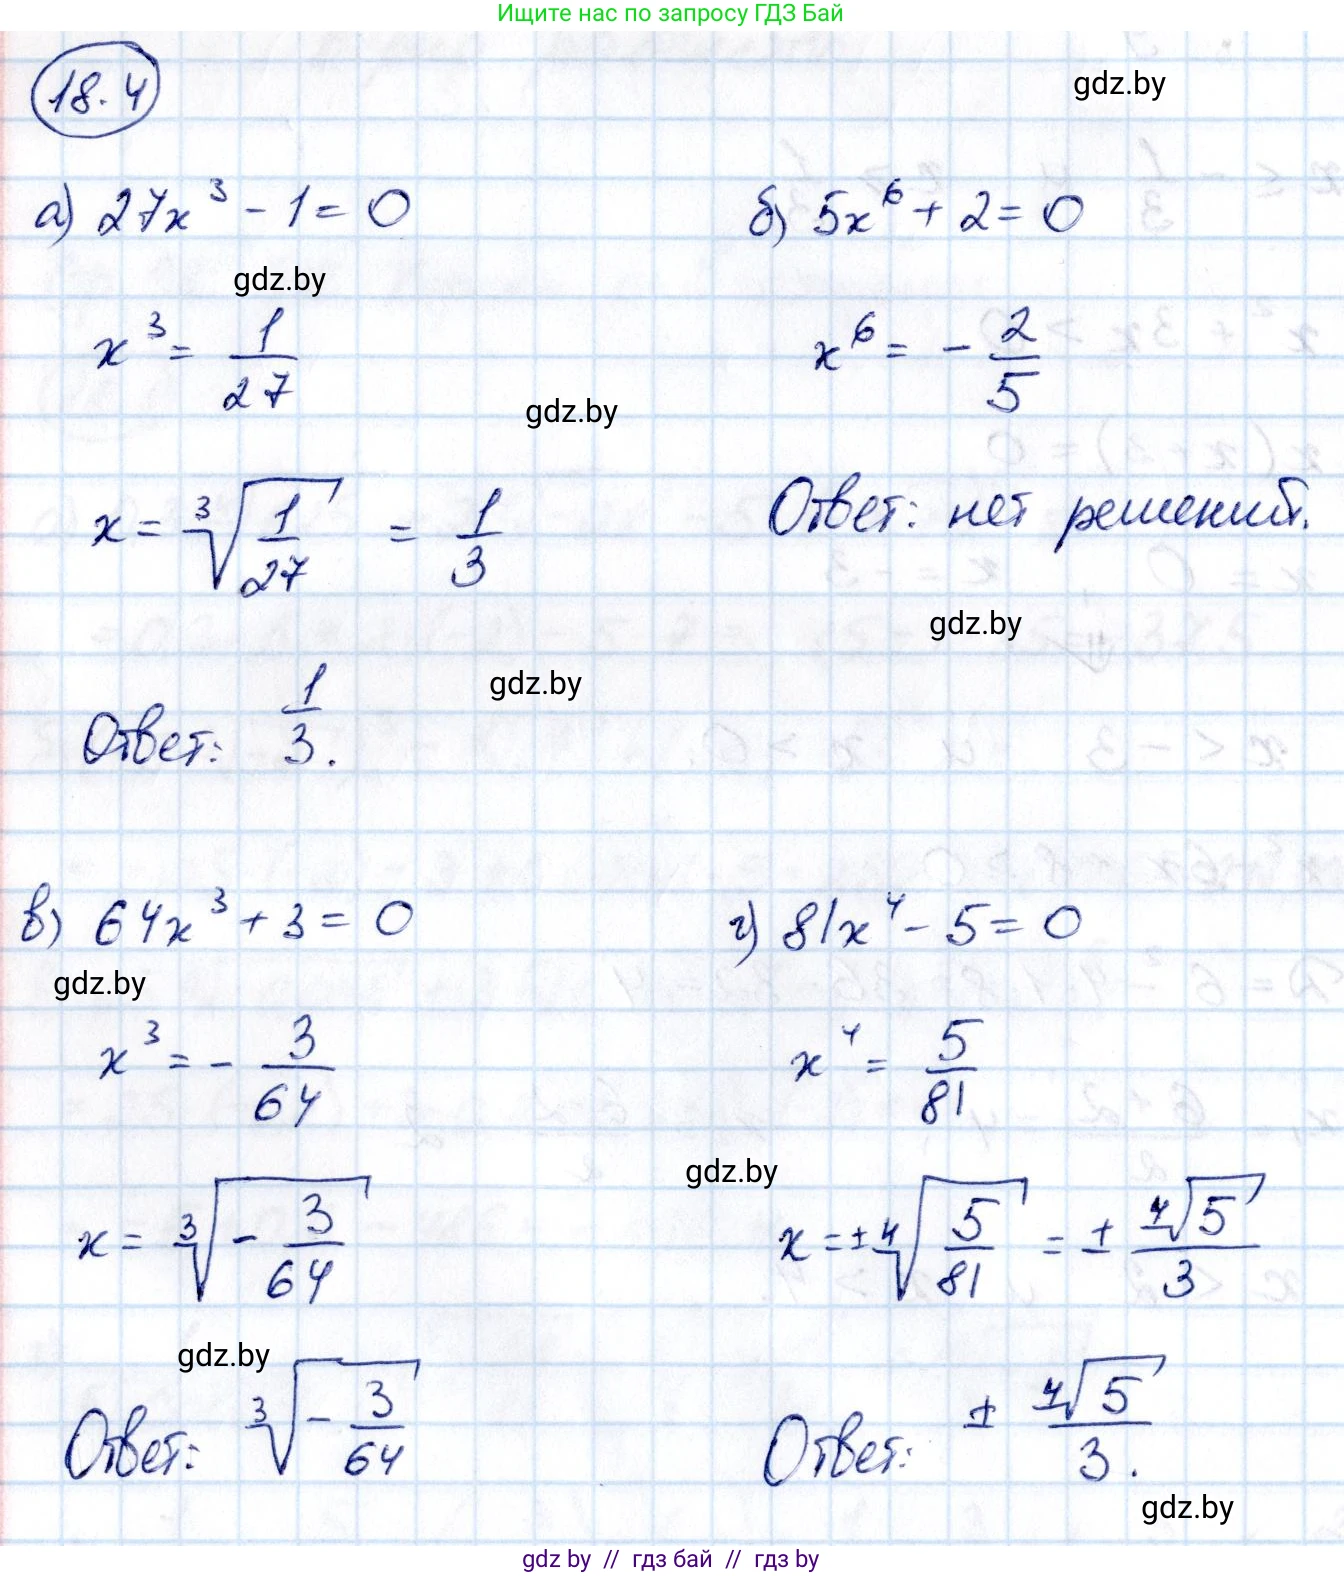 Ищите нас по запросу ГДЗ Бай
18.4
gdz.by
а) 27x³ - 1 = 0
б) 5x⁶ + 2 = 0
gdz.by
x³ = 1/27
x⁶ = - 2/5
gdz.by
x = ∛(1/27) = 1/3
Ответ: нет решений.
gdz.by
gdz.by
Ответ: 1/3.
в) 64x³ + 3 = 0
г) 81x⁴ - 5 = 0
gdz.by
x³ = - 3/64
x⁴ = 5/81
gdz.by
x = ∛(- 3/64)
x = ± ∜(5/81) = ± ∜5/3
gdz.by
Ответ: ∛(- 3/64)
Ответ: ± ∜5/3.
gdz.by
gdz.by // гдз бай // гдз by